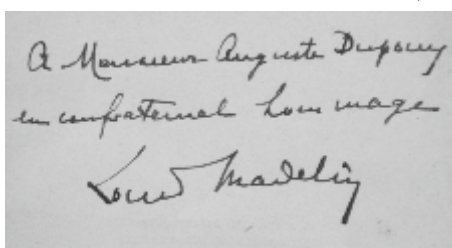 A Monsieur Auguste Dupouy
en confraternel hommage
Louis Madelin